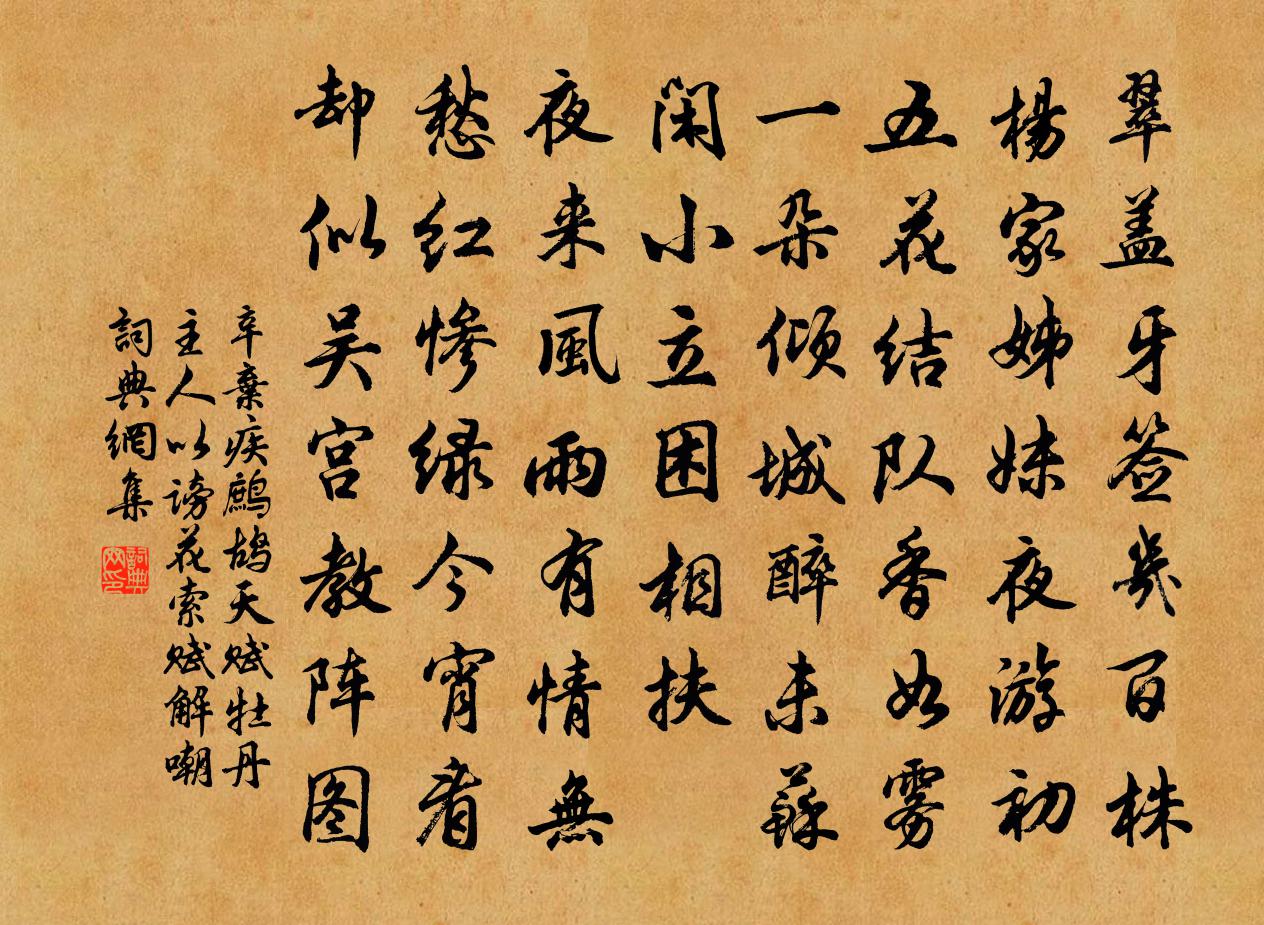 翠盖牙签幾百株
楊家姊妹夜游初
五花结队香如雾
一朵倾城醉未蘇
闲小立困相扶
夜来風雨有情無
愁红惨绿今宵看
却似吴宫教阵图
辛棄疾鷓鴣天赋牡丹
主人以谤花索赋解嘲
詞典網集
詞典网印